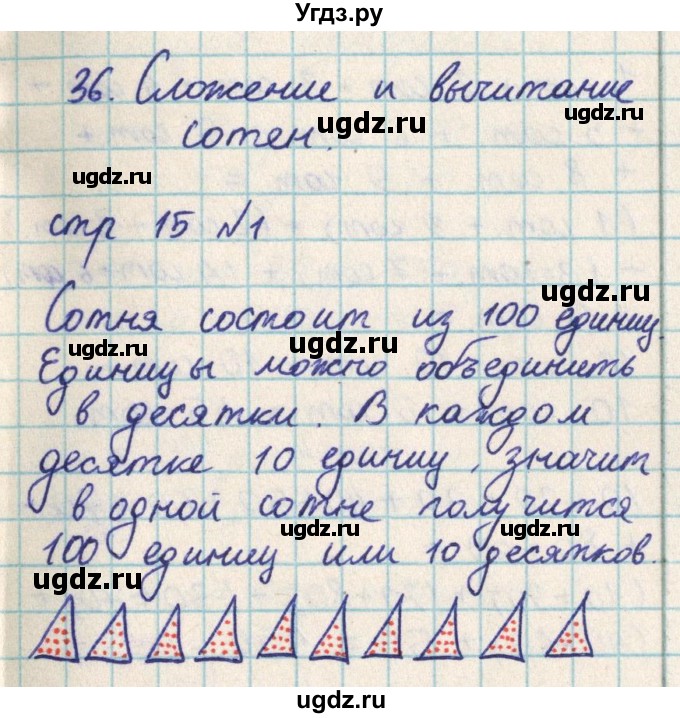 Угдз.ру
36. Сложение и вычитание
ugdz.ru
ugdz.ru
сотен.
ugdz.ru
стр 15 №1
ugdz.ru
Сотня состоит из 100 единиц.
ugdz.ru
ugdz.ru
Единицы можно объединить
в десятки. В каждом
десятке 10 единиц, значит
в одной сотне получится
ugdz.ru
ugdz.ru
100 единиц или 10 десятков.
ugdz.ru
ugdz.ru